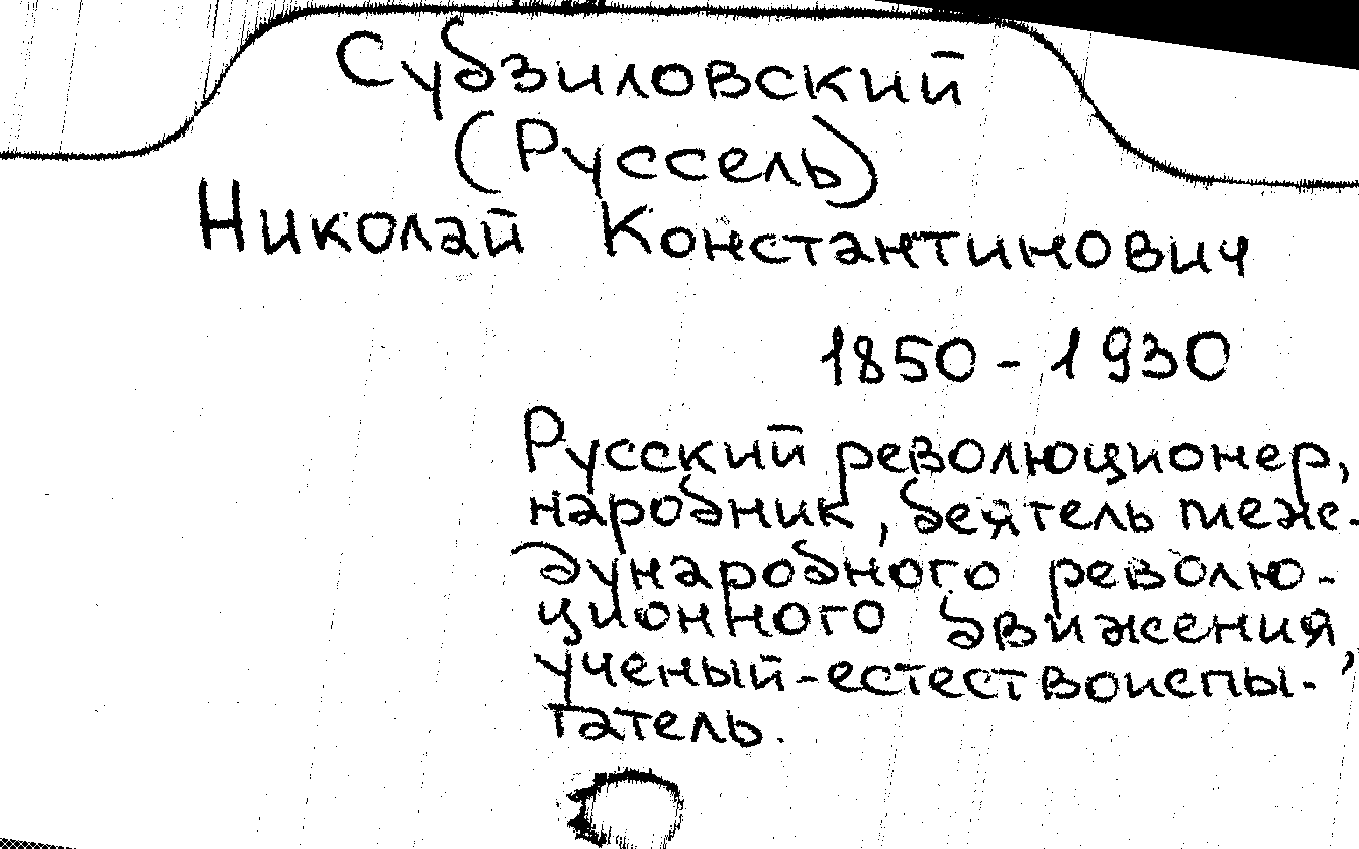 Судзиловский
(Руссель)
Николай Константинович
1850 - 1930
Русский революционер,
народник, деятель меж-
дународного револю-
ционного движения,
ученый-естествоиспы-
татель.